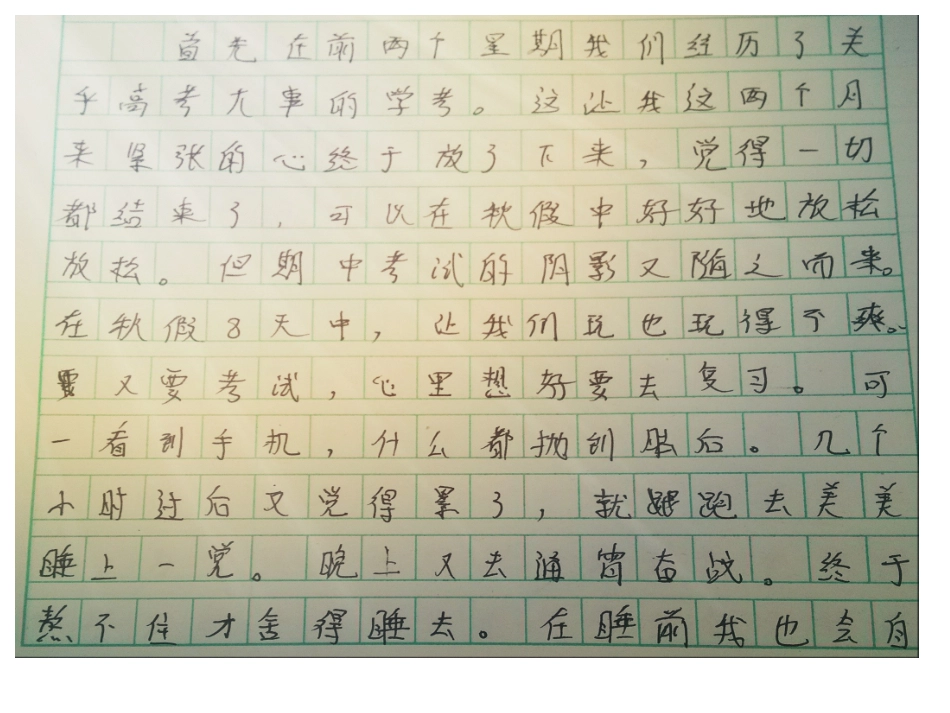 首先在前两个星期我们经历了关
乎高考大事的学考。这让我这两个月
来紧张的心终于放了下来，觉得一切
都结束了，可以在秋假中好好地放松
放松。但期中考试的阴影又随之而来。
在秋假8天中，让我们玩也玩得不爽。
又要考试，心里想好要去复习。可
一看到手机，什么都抛到脑后。几个
小时过后又觉得累了，就跑去美美
睡上一觉。晚上又去通宵奋战。终于
熬不住才舍得睡去。在睡前我也会自